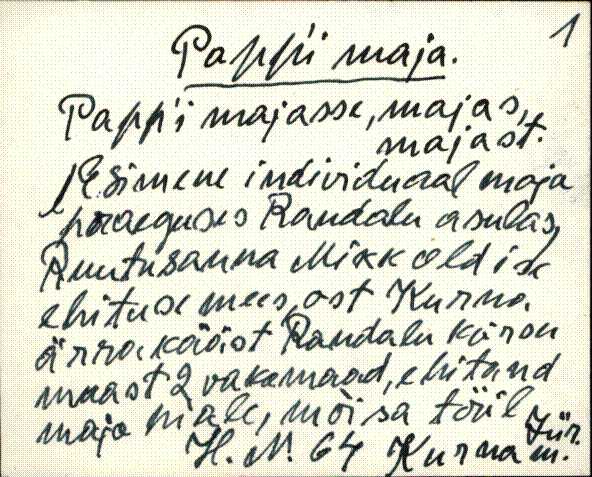 1
Papp'i maja.
Papp'i majasse, majas,
majast.
Esimene individuaal maja
praeguses Randalu asulas,
Ruutusauna Mikk old ise
ehituse mees, ost Kurna
ärra käöst Randalu kürou
maast 2 vakamaad, ehitand
maja piale, mõisa tööl
H. N. 64 Kurna m.
Jür.